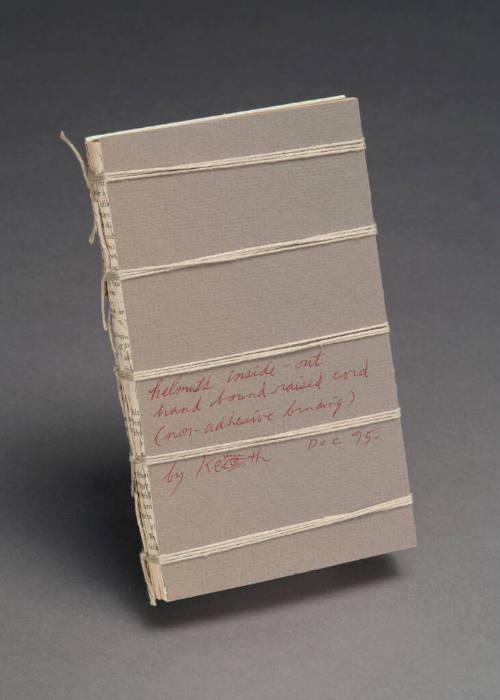 helmut's inside-out
hand bound raised cord
(non-adhesive binding)
by Keith Dec 95-